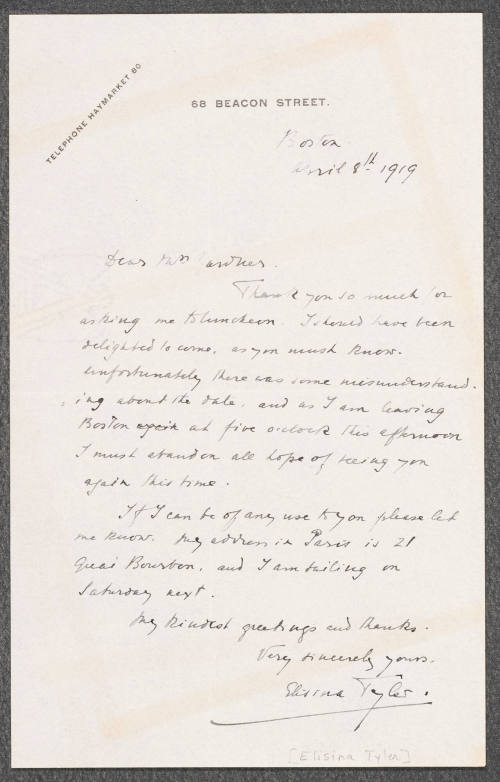 TELEPHONE HAYMARKET 80
68 BEACON STREET.
Boston
April 8th 1919
Dear Mrs Gardner.
Thank you so much for
asking me to luncheon. I should have been
delighted to come, as you must know.
Unfortunately there was some misunderstand-
ing about the date, and as I am leaving
Boston again at five o'clock this afternoon
I must abandon all hope of seeing you
again this time.
If I can be of any use to you please let
me know. My address in Paris is 21
Quai Bourbon, and I am sailing on
Saturday next.
My kindest greetings and thanks.
Very sincerely yours.
Elisina Tyler.
[Elisina Tyler]